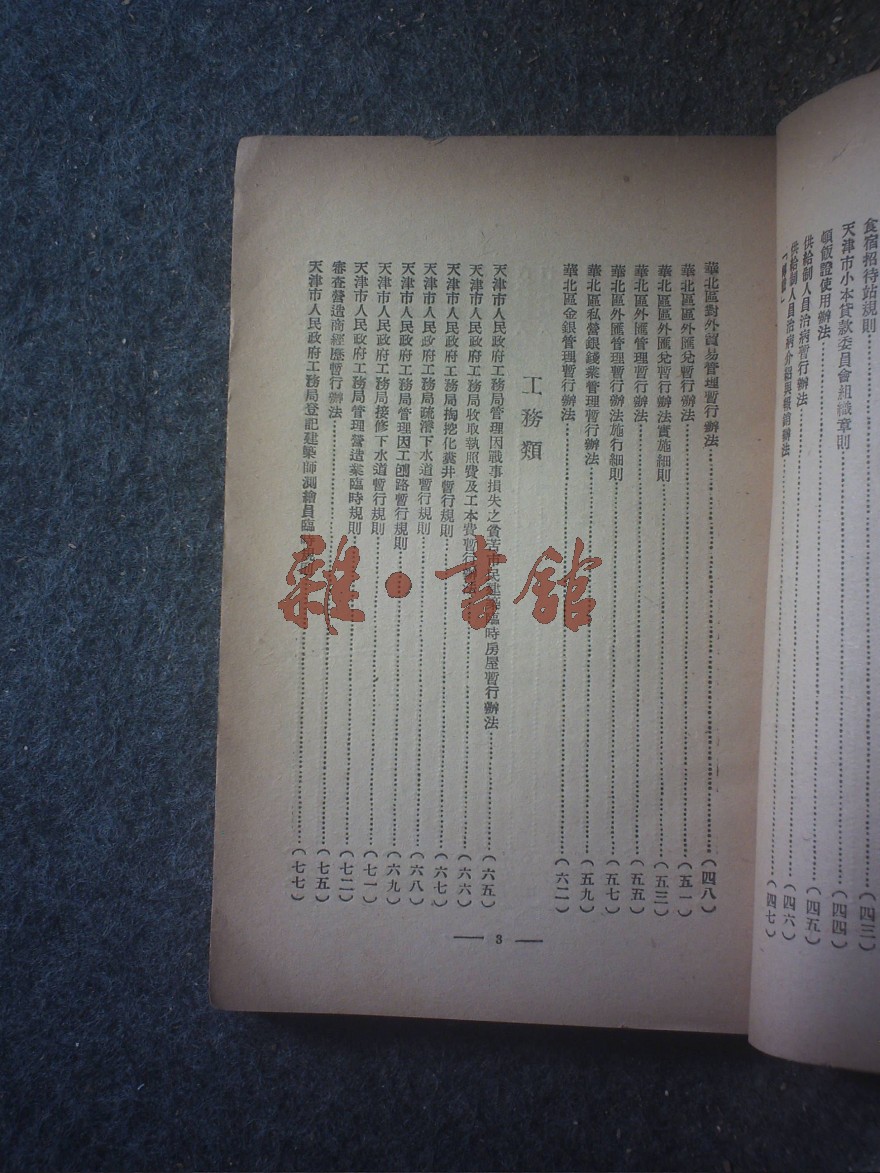 食宿招待站規則……(四三)
天津市小本貸款委員會組織章則……(四四)
頓飯證使用辦法……(四五)
供給制人員治病暫行辦法……(四六)
供給制人員治病介紹與報銷辦法……(四七)
華北區對外貿易管理暫行辦法……(四八)
華北區區外匯兌暫行辦法……(五一)
華北區區外匯兌暫行辦法實施細則……(五三)
華北區外匯管理暫行辦法……(五五)
華北區外匯管理暫行辦法施行細則……(五七)
華北區私營銀錢業管理暫行辦法……(五九)
華北區金銀管理暫行辦法……(六二)
工務類
天津市人民政府工務局管理因戰事損失之貧苦市民建築臨時房屋暫行辦法……(六五)
天津市人民政府工務局收取執照費及工本費暫行辦法……(六六)
天津市人民政府工務局掏挖化糞井暫行規則……(六七)
天津市人民政府工務局疏濬下水道暫行規則……(六八)
天津市人民政府工務局管理因工刨路暫行規則……(六九)
天津市人民政府工務局接修下水道暫行規則……(七一)
天津市人民政府工務局管理營造業臨時規則……(七二)
審查營造商經歷暫行辦法……(七五)
天津市人民政府工務局登記建築師測繪員臨時……(七七)
— 3 —
雜·書館